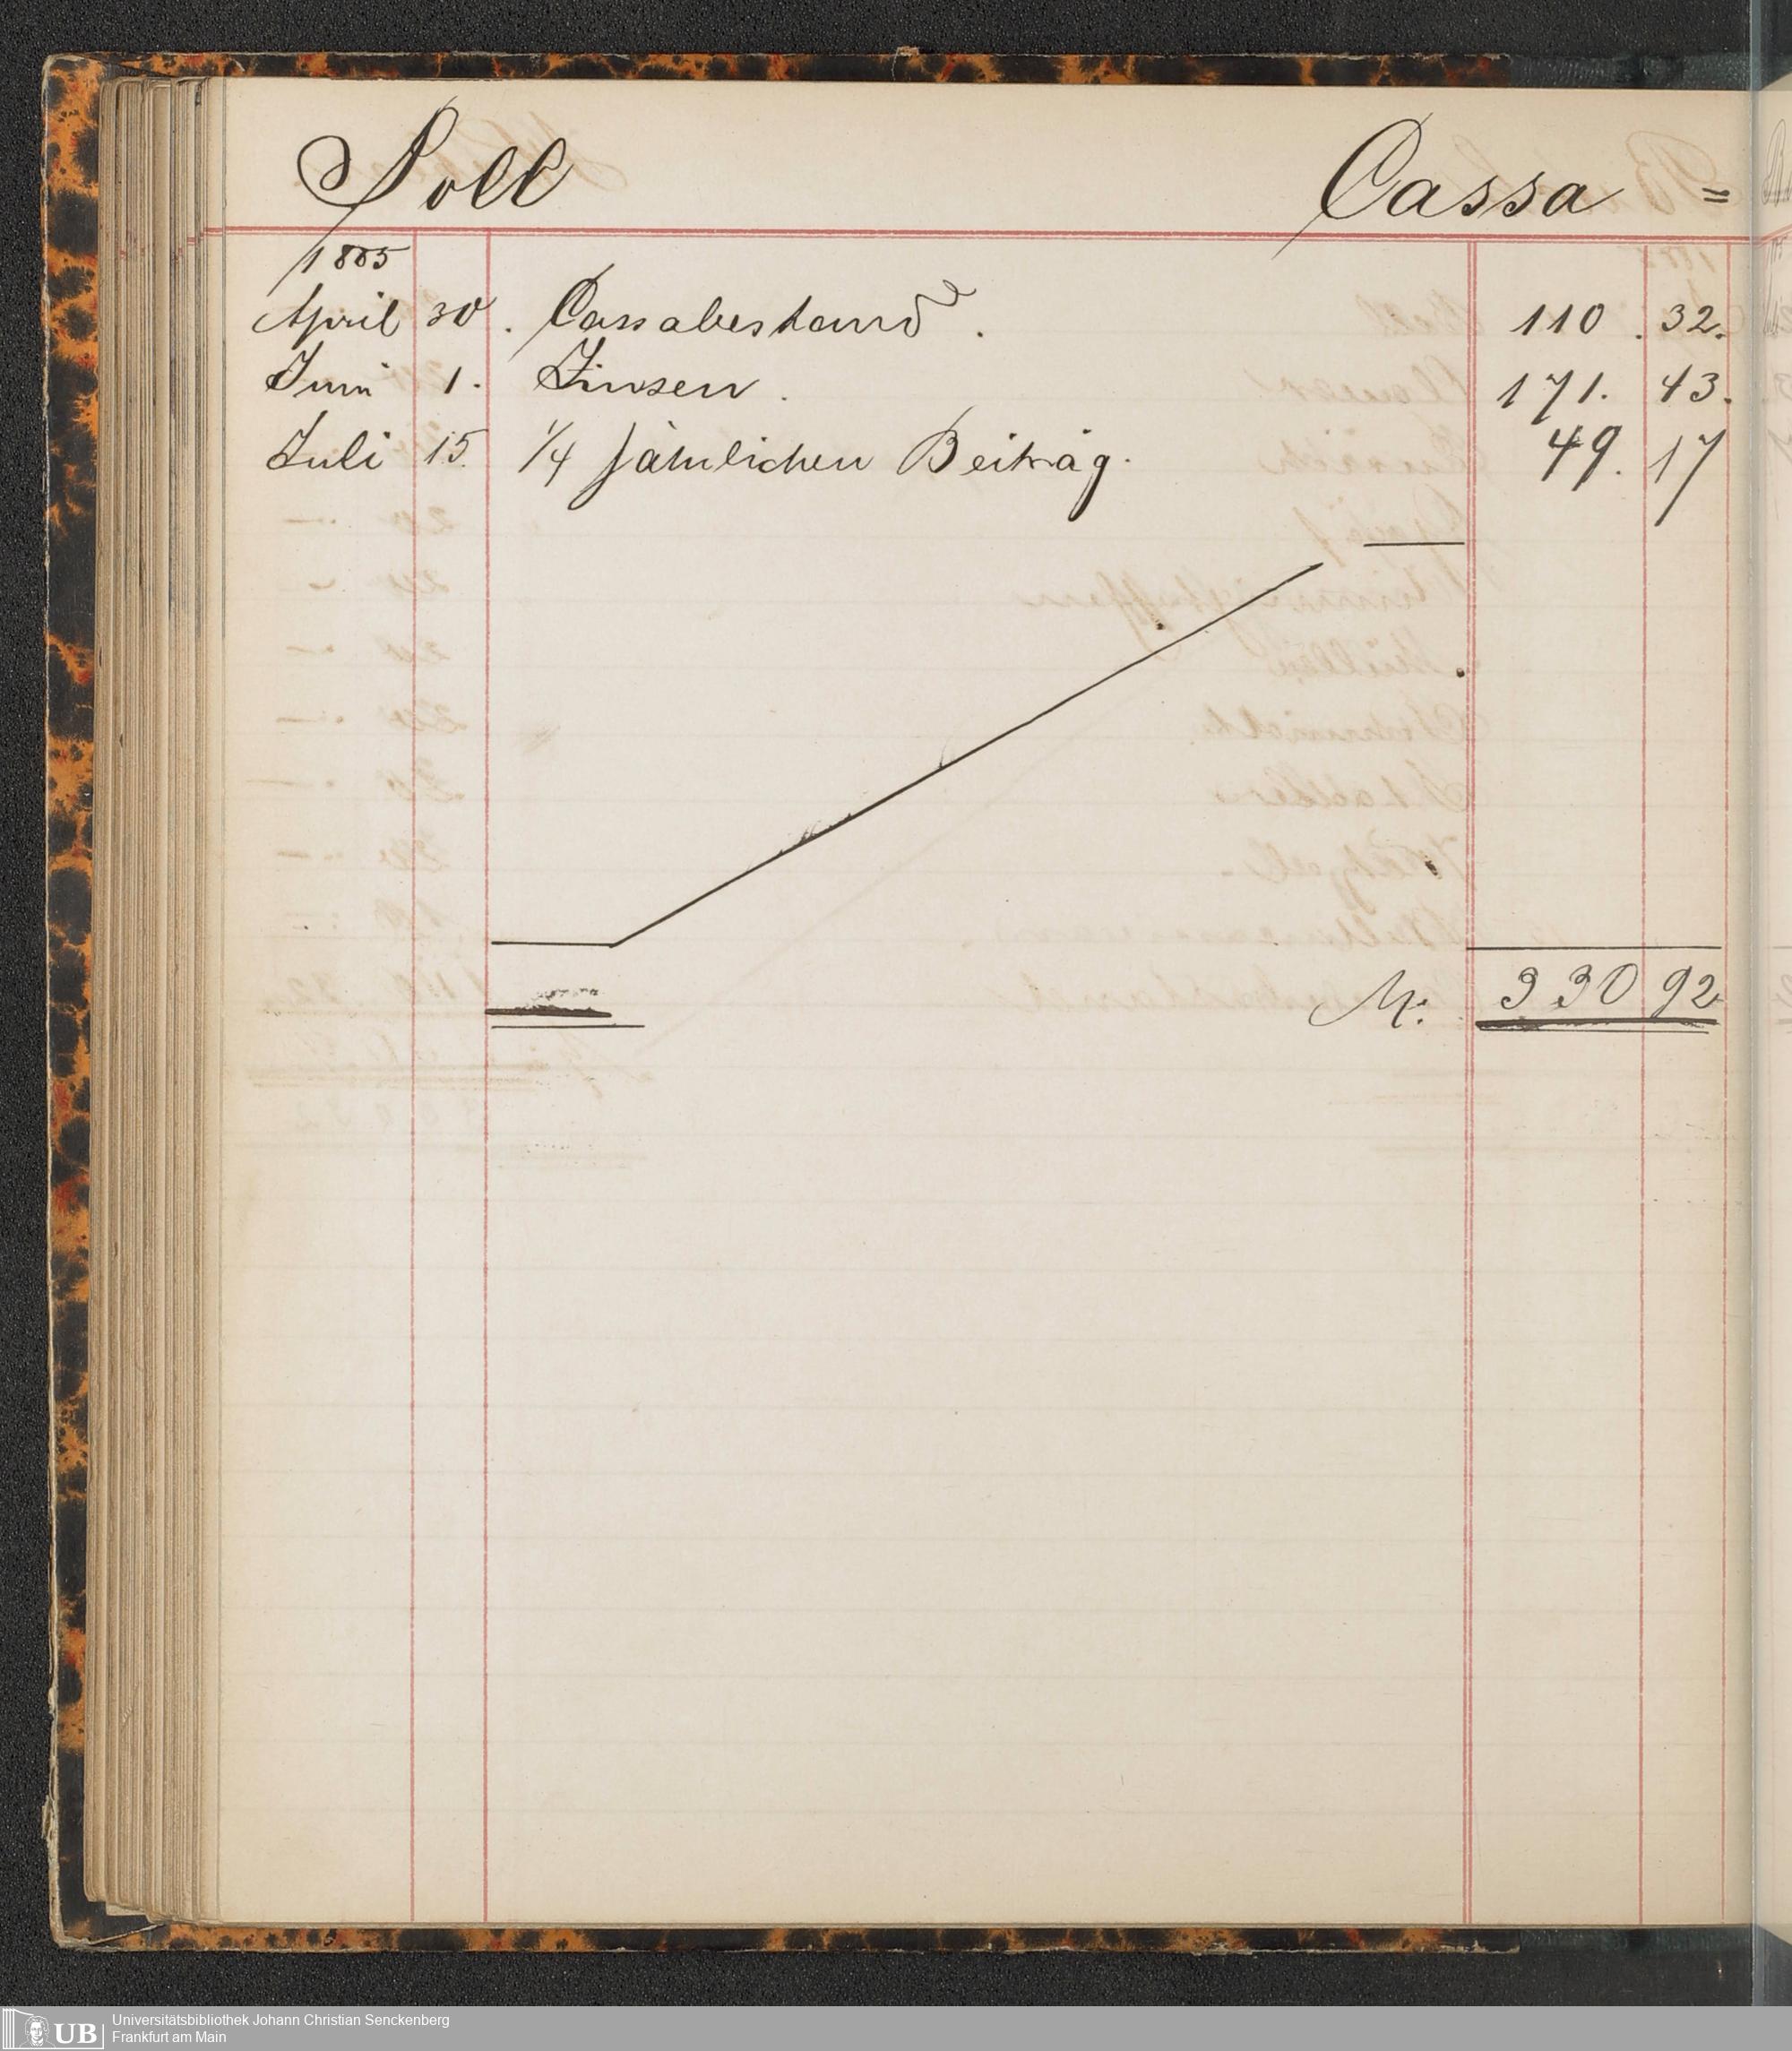 Soll Cassa =
1885
April 30. Cassabestand. 110. 32.
Juni 1. Zinsen. 171. 43.
Juli 15. 1/4 jährlichen Beitrag. 49. 17
M. 330 92
UB Universitätsbibliothek Johann Christian Senckenberg
Frankfurt am Main